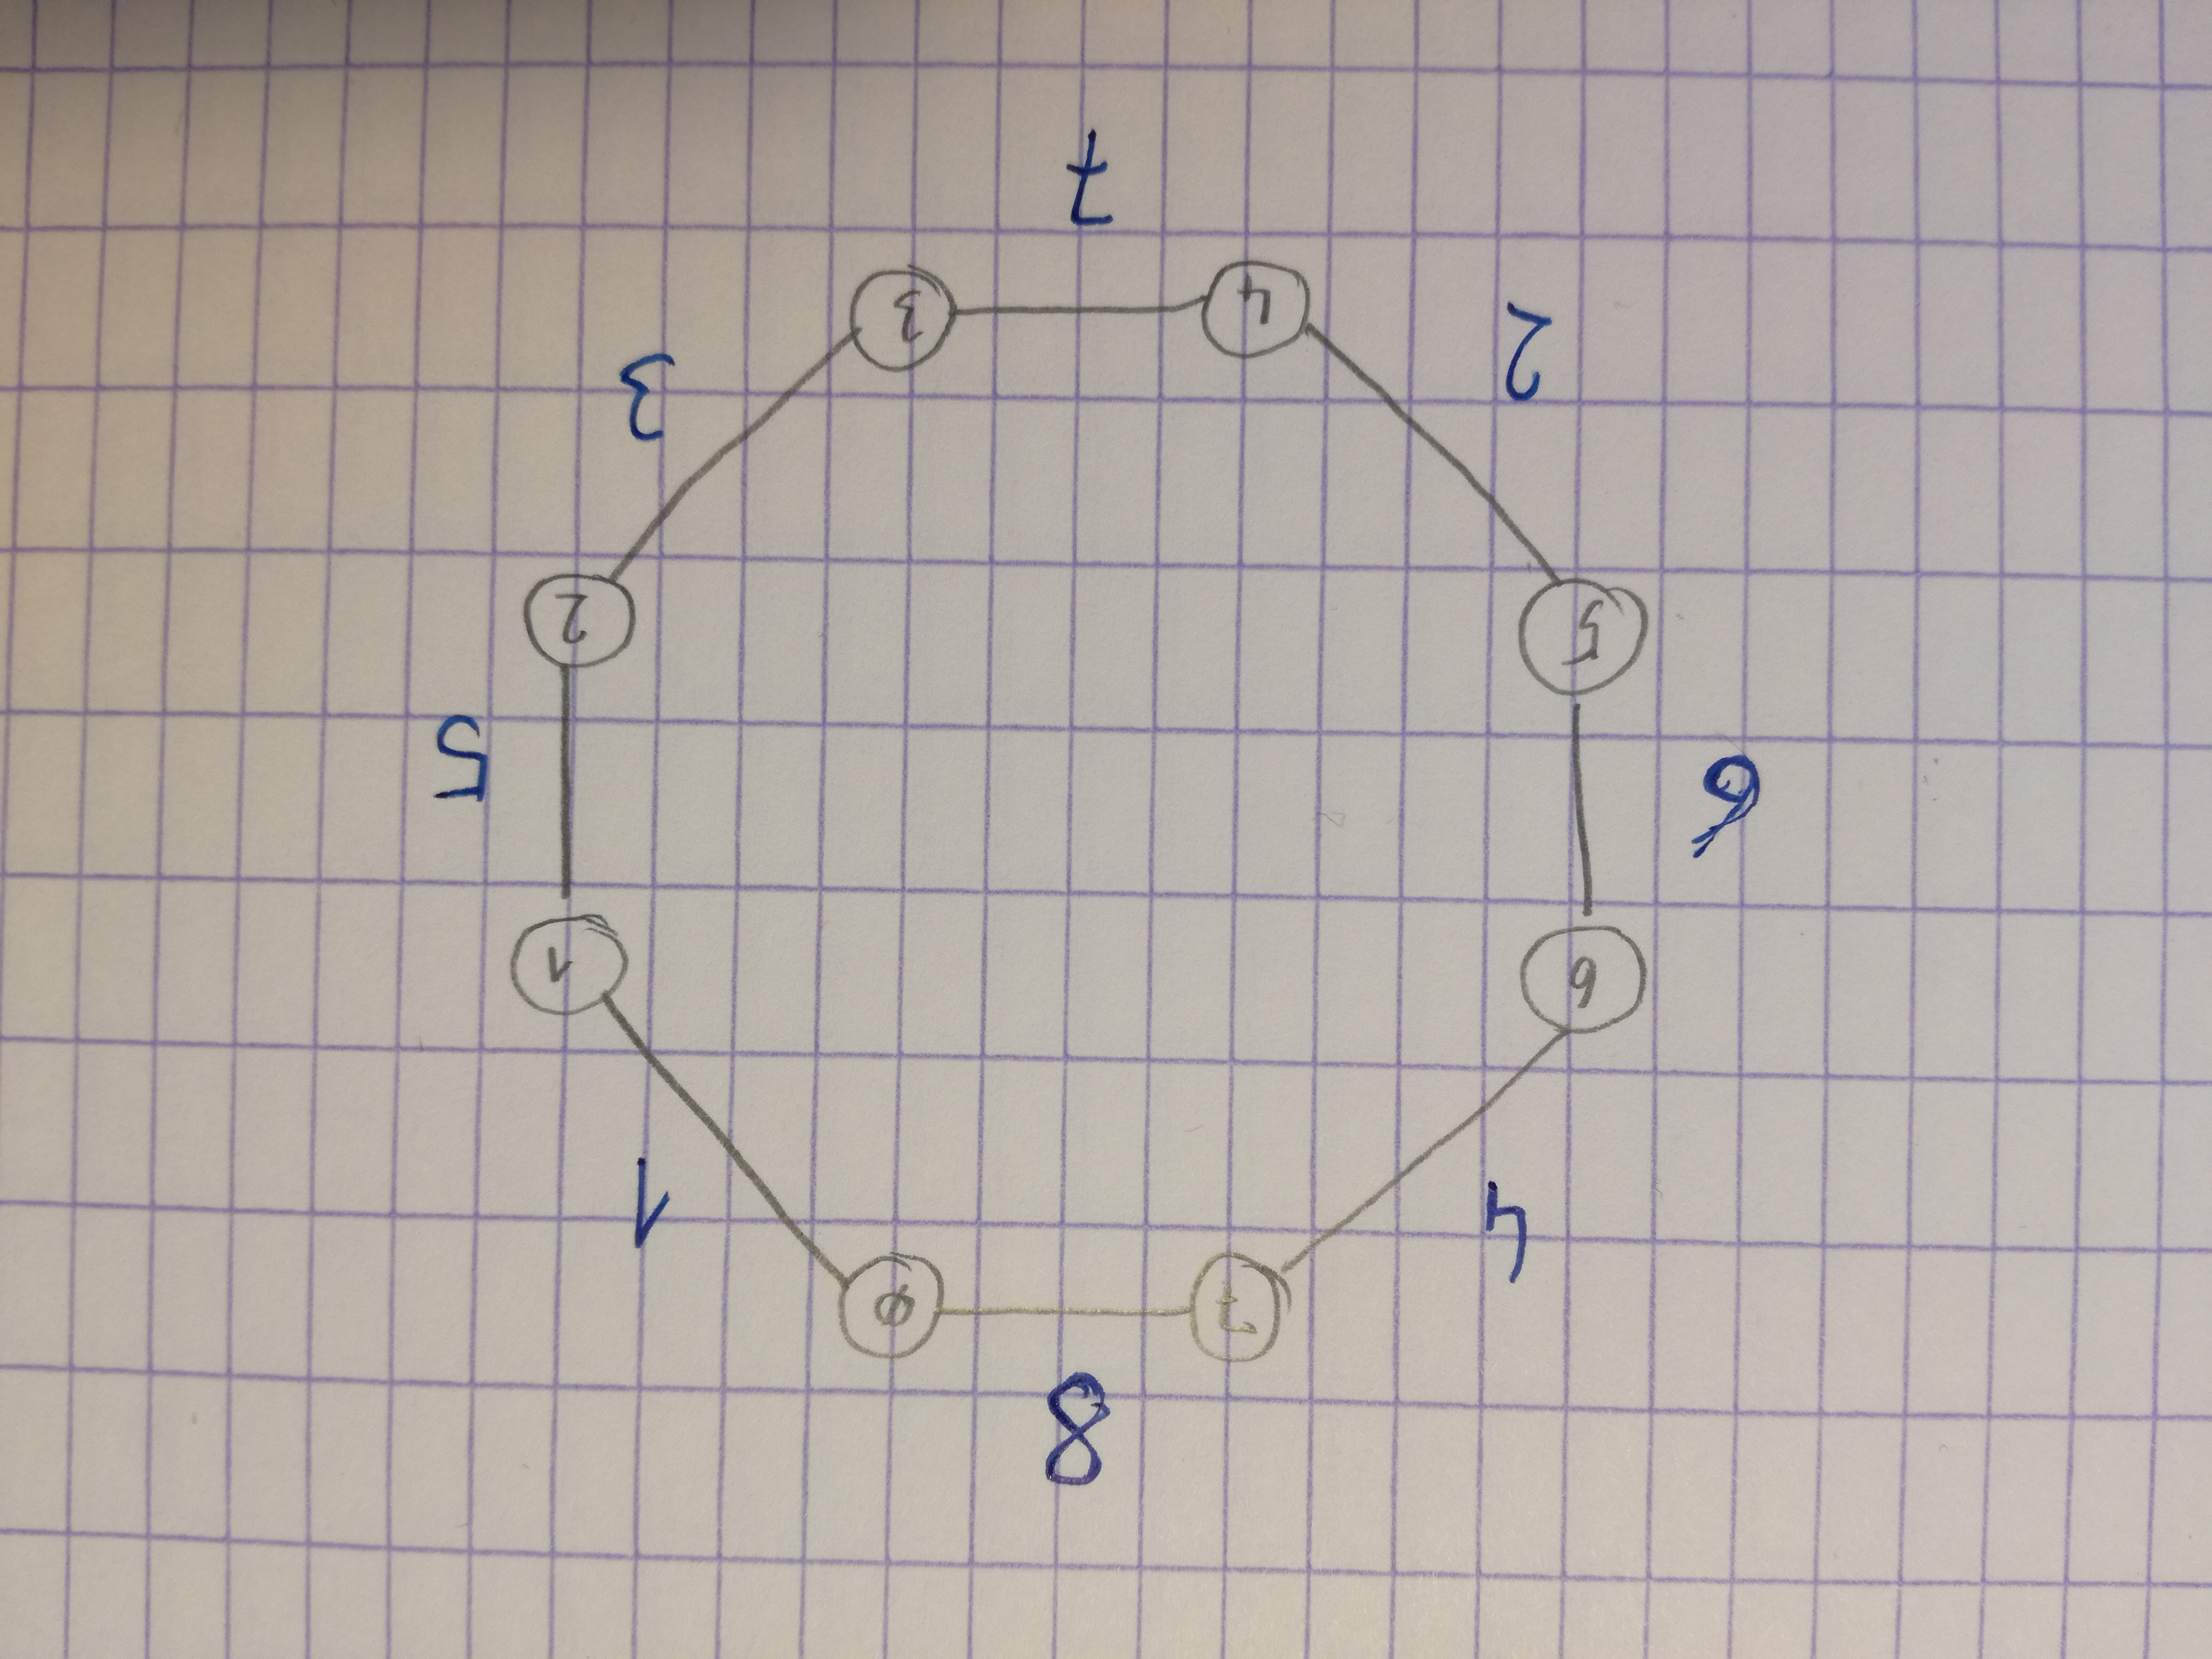 8
7 0
4 1
6 1
6 5
5 2
2 3
4 3
7